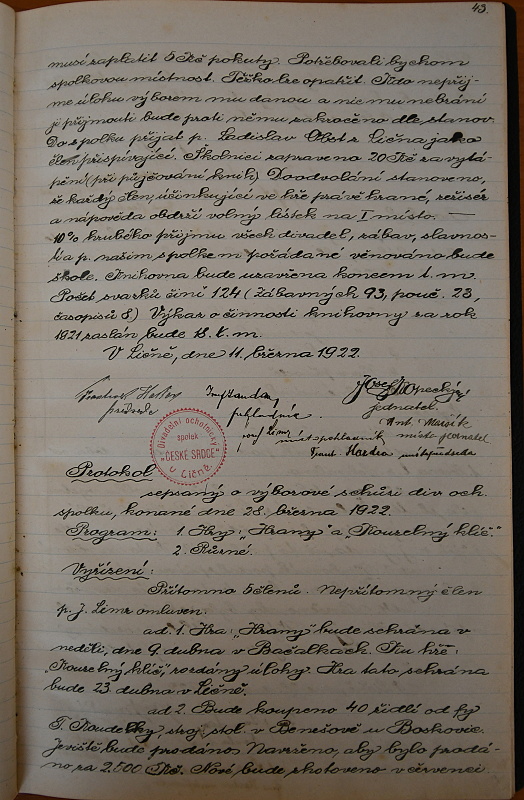 43.
musí zaplatit 5 Kč pokuty. Potřebovali bychom
spolkovou místnost. Těžko lze opatřit. Kdo nepřij-
me úlohu výborem mu danou a nic mu nebrání
ji přijmouti bude proti němu zakročeno dle stanov.
Do spolku přijat p. Ladislav Obst z Lična jako
člen přispívající. Školnici zapraveno 20 Kč za vytá-
pění (při půjčování knih) Do odvolání stanoveno,
že každý člen, účinkující ve hře právě hrané, režisér
a nápověda obdrží volný lístek na I. místo. —
10% hrubého příjmu všech divadel, zábav, slavnos-
tí a p. naším spolkem pořádané věnováno bude
škole. Knihovna bude uzavřena koncem t. m.
Počet svazků činí 124 (Zábavných 93, pouč. 23,
časopisů 8) Výkaz o činnosti knihovny za rok
1921 zaslán bude 18. t. m.
V Ličně, dne 11. března 1922.
jednatel.
pokladník
Ant.
místopokladník místo jednatel
Frant. Hartra místopředseda
Divadelní ochotnický
spolek
"ČESKÉ SRDCE"
v Ličně.
Protokol
sepsaný o výborové schůzi div. och.
spolku, konané dne 28. března 1922.
Program: 1. Hry: „Hrany" a „Kouzelný klíč."
2. Různé.
Vyřízení:
Přítomno 5 členů. Nepřítomný člen
p. J. omluven.
ad. 1. Hra: „Hrany" bude sehrána v
neděli, dne 9. dubna v Bačalkách. Ku hře:
„Kouzelný klíč," rozdány úlohy. Hra tato sehrána
bude 23 dubna v Ličně.
ad 2. Bude koupeno 40 židlí od fy
T. Koudelky, stroj. stol. v Benešově u Boskovic.
Jeviště bude prodáno. Navrženo, aby bylo prodá-
no za 2.500 Kč. Nové bude zhotoveno v červenci